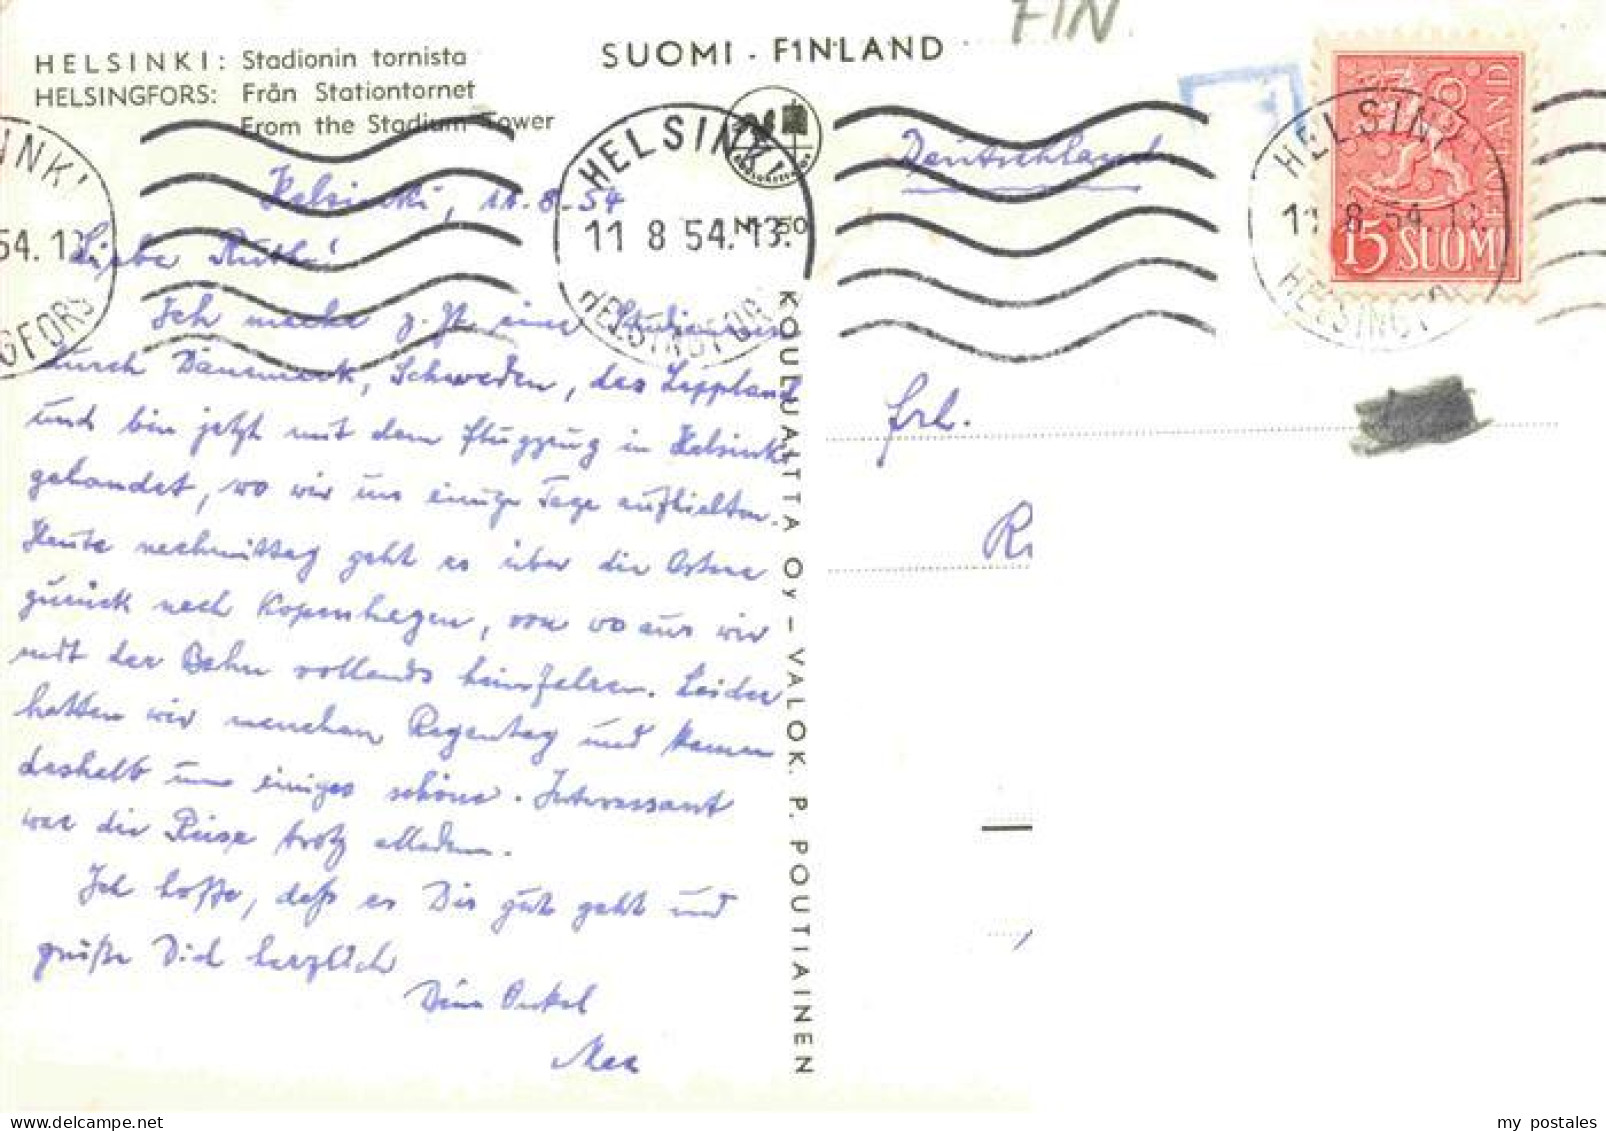 FIN
HELSINKI: Stadionin tornista
HELSINGFORS: Från Stationtornet
From the Stadium Tower
SUOMI - FINLAND
Nr. 350
HELSINKI
11 8 54.13.
HELSINGFORS
NKI
54.13
GFORS
Helsinki, 11.8.54
Liebe Ruth!
Ich mache z. Zt. eine Studienreise
durch Dänemark, Schweden, das Lappland
und bin jetzt mit dem Flugzeug in Helsinki
gelandet, wo wir uns einige Tage aufhielten.
Heute nachmittag geht es über die Ostsee
zurück nach Kopenhagen, von wo aus wir
mit der Bahn vollends heimfahren. Leider
hatten wir manchen Regentag und kamen
deshalb um einiges schöne. Interessant
war die Reise trotz alledem.
Ich hoffe, daß es Dir gut geht und
grüße Dich herzlich
Dein Onkel
Max
KOULUAITTA Oy – VALOK. P. POUTIAINEN
Deutschland
HELSINKI
11 8 54.13.
HELSINGFOR
FINLAND
15 SUOMI
Frl.
R
my postales